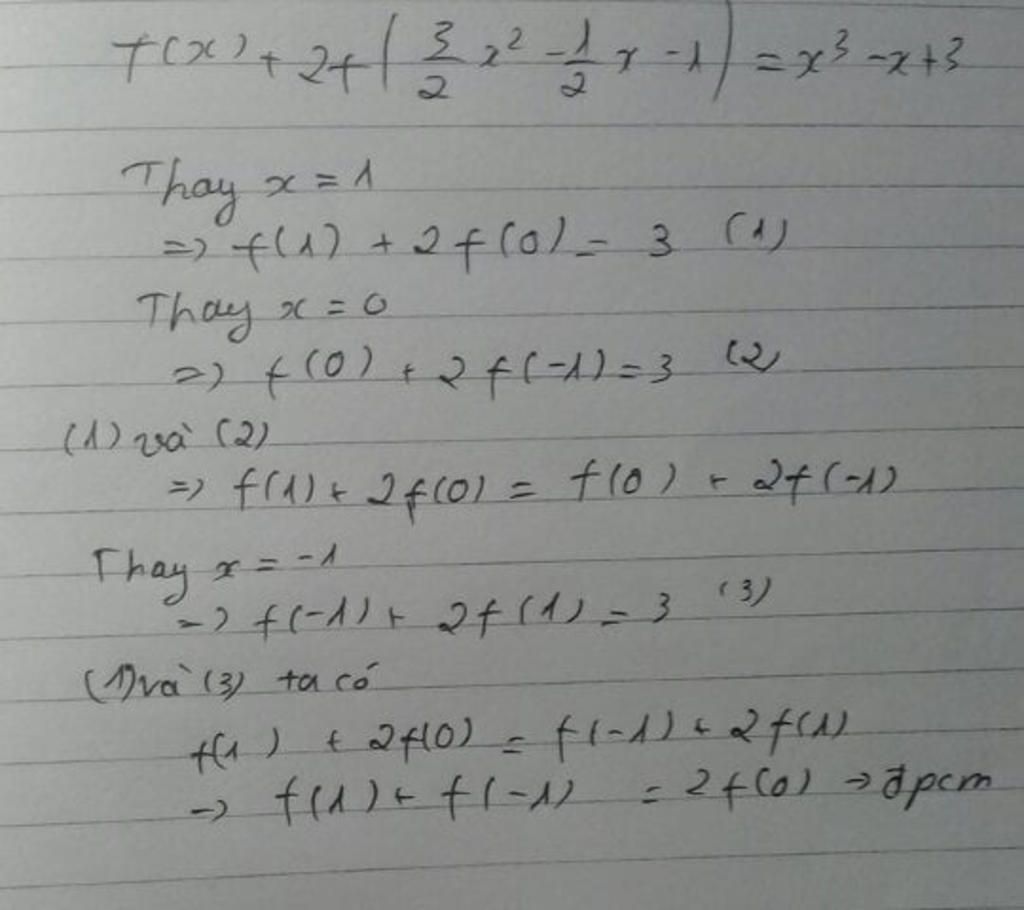 f(x) + 2f(3/2 x² - 1/2 x - 1) = x³ - x + 3
Thay x = 1
=> f(1) + 2f(0) = 3 (1)
Thay x = 0
=> f(0) + 2f(-1) = 3 (2)
(1) và (2)
=> f(1) + 2f(0) = f(0) + 2f(-1)
Thay x = -1
=> f(-1) + 2f(1) = 3 (3)
(1) và (3) ta có
f(1) + 2f(0) = f(-1) + 2f(1)
-> f(1) + f(-1) = 2f(0) -> đpcm